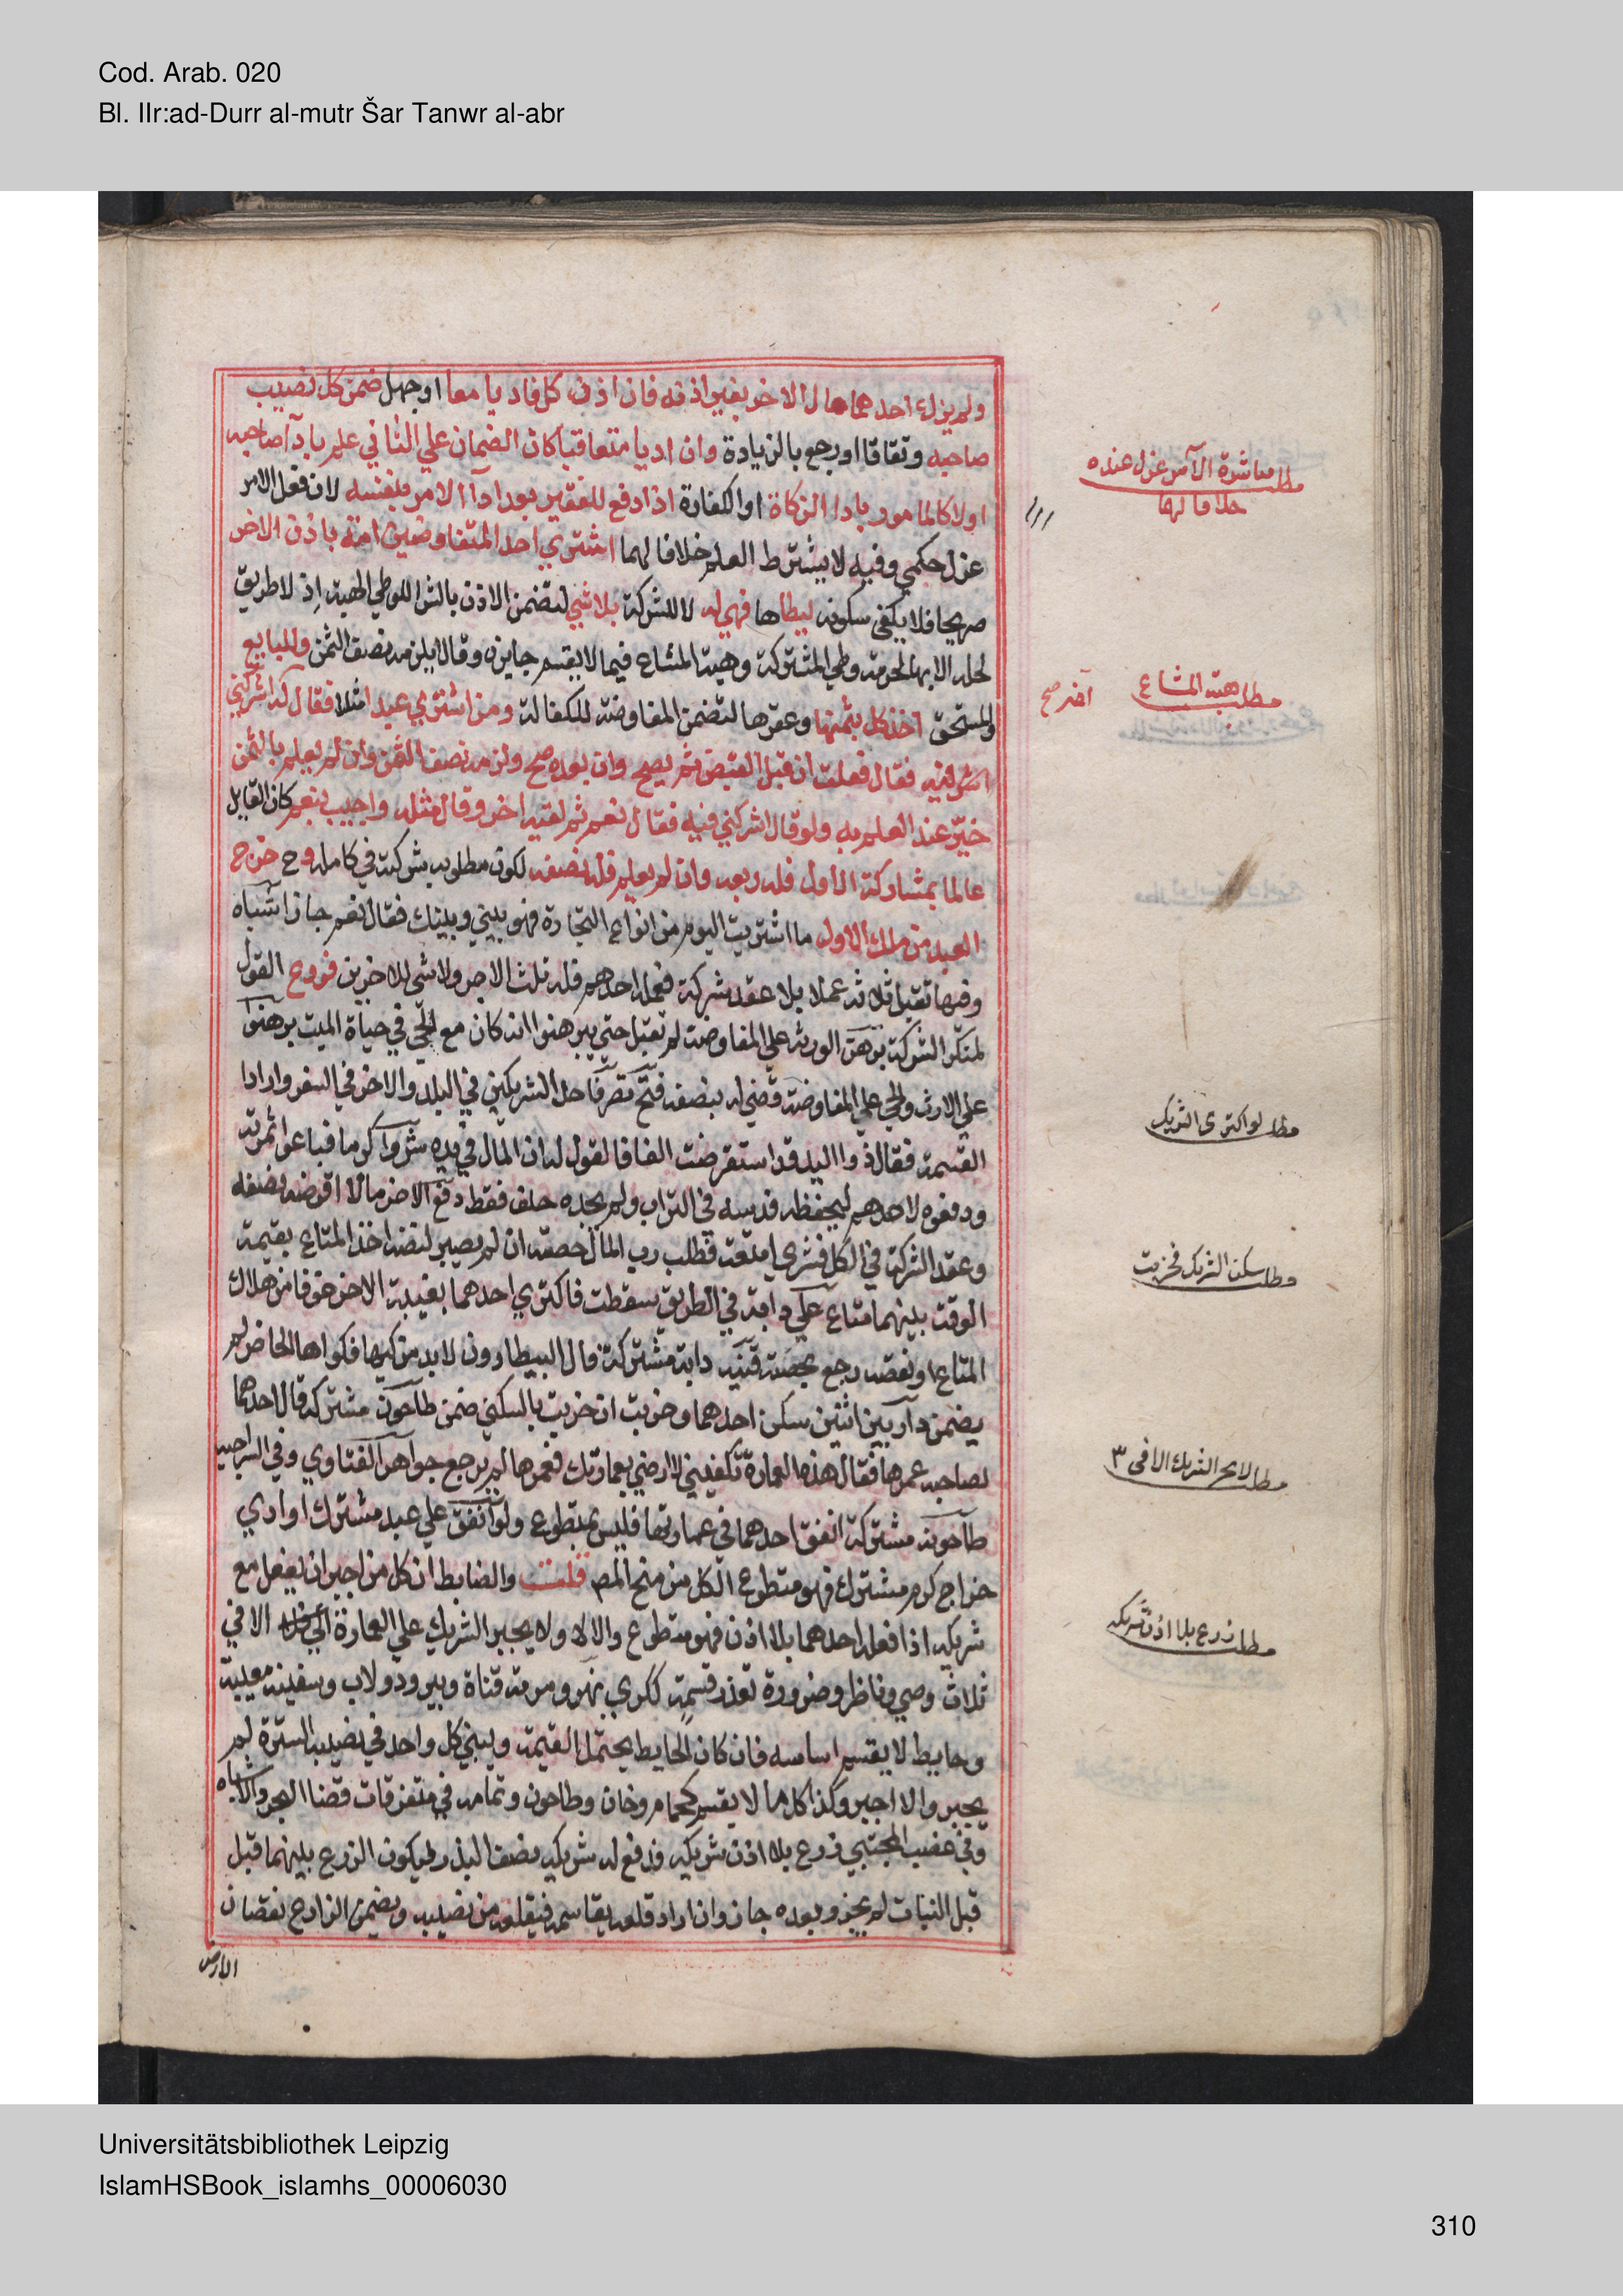 Cod. Arab. 020
Bl. IIr:ad-Durr al-mutr Šar Tanwr al-abr
ولم يزك احدهما مال الاخر بغير اذنه فان اذن كل فاديا معا او جهل ضمن كل نصيب
صاحبه وتقاصا او رجع بالزيادة وان اديا متعاقبا كان الضمان علي الثاني علم بادآ صاحبه
اولا كالمامور باداا الزكاة او الكفارة اذا دفع للفقير بعد ادآ الامر بنفسه لان فعل الامر
عزل حكمي وفيه لا يشترط العلم خلافا لهما اشتري احد المتفاوضين امة باذن الاخر
صريحا فلا يكفي سكوته ليطاها فهي له لا للشركة بلا شي لتضمن الاذن بالشرا للوطي الهبة إذ لا طريق
لحله الا بها لحرمة وطي المشتركة وهبة المشاع فيما لا يقسم جايزة وقالا يلزمه نصف الثمن وللبايع
والمستحق اخذ كل بثمنها وعقرها لتضمن المفاوضة للكفالة ومن اشتري عبدا مثلا فقال له اشركني
فيه فقال فعلت ان قبل القبض لم يصح وان بعده صح ولزمه نصف الثمن وان لم يعلم بالثمن
خير عند العلم به ولو قال اشركني فيه فقال نعم ثم لقيه اخر وقال مثله واجيب بنعم كان القايل
عالما بمشاركة الاول فله ربعه وان لم يعلم فله نصفه لكون مطلوبه شركة في كامله وح خرج
العبد من ملك الاول ما اشتريت اليوم من انواع التجارة فهو بيني وبينك فقال نعم جاز اشباه
وفيها تقبل ثلاثة عملا بلا عقد شركة فعمله احدهم فله ثلث الاجر ولا شي للاخرين فروع القول
لمنكر الشركة برهن الورثة علي المفاوضة لم تقبل حتي يبرهنوا انه كان مع الحي في حياة الميت برهنوا
علي الارث والحي علي المفاوضة قضي له بنصفه فتح تصرف احد الشريكين في البلد والاخر في السفر وارادا
القسمة فقال ذوا اليد قد استقرضت الفا فالقول له ان المال في يده شروا كرما فباعوا ثمرته
ودفعوه لاحدهم ليحفظه فدسه في التراب ولم يجده حلف فقط دفع الاخر مالا اقرضه نصفه
وعقد الشركة في الكل فشري امتعة فطلب رب المال حصته ان لم يصبر لنضه اخذ المتاع بقيمة
الوقت بينهما متاع علي دابة في الطريق سقطت فاكتري احدهما بغيبة الاخر خوفا من هلاك
المتاع او نقصه رجع بحصته قنيه دابة مشتركة قال البيطارون لابد من كيها فكواها الحاضر لم
يضمن دار بين اثنين سكن احدهما وخربت ان خربت بالسكني ضمن طاحون مشتركة قال احدهما
لصاحبه عمرها فقال هذه العمارة تكفيني لا ارضي بعمارتك فعمرها لم يرجع جواهر الفتاوي وفي السراجيه
طاحونة مشتركة انفق احدهما في عمارتها فليس بمتطوع ولو انفق علي عبد مشترك او ادي
خراج كرم مشترك فهو متطوع الكل من منح المص قلت والضابط ان كل من اجبر ان يفعل مع
شريكه اذا فعله احدهما بلا اذن فهو متطوع والا لا ولا يجبر الشريك علي العمارة الا في
ثلاث وصي وناظر وضرورة تعذر قسمة ككري نهر ومرمة قناة وبير ودولاب وسفينة معيبة
وحايط لا يقسم اساسه فان كان الحايط يحتمل القسمة ويبني كل واحد في نصيبه السترة لم
يجبر والا اجبر وكذا كل ما لا يقسم كحمام وخان وطاحون وتمامه في متفرقات قضا البحر والاشباه
وفي غصب المجتبي زرع بلا اذن شريكه فدفع له شريكه نصف البذر ليكون الزرع بينهما قبل
قبل النبات لم يجز وبعده جاز وان اراد قلعه يقاسمه فيقلعه من نصيبه ويضمن الزارع نقصان
الارض
مطلب مباشرة الآمر عزل عنده
خلافا لهما
مطلب هبة المشاع
مطلب لو اكترى الشريك
مطلب سكن الشريك فخربت
مطلب لا يجبر الشريك الا في ٣
مطلب زرع بلا اذن شريكه
Universitätsbibliothek Leipzig
IslamHSBook_islamhs_00006030
310